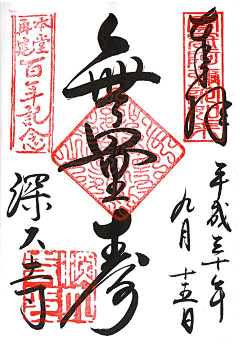 奉拝
平成三十年
九月十五日
無量寿
本堂再建
百年記念
深大寺